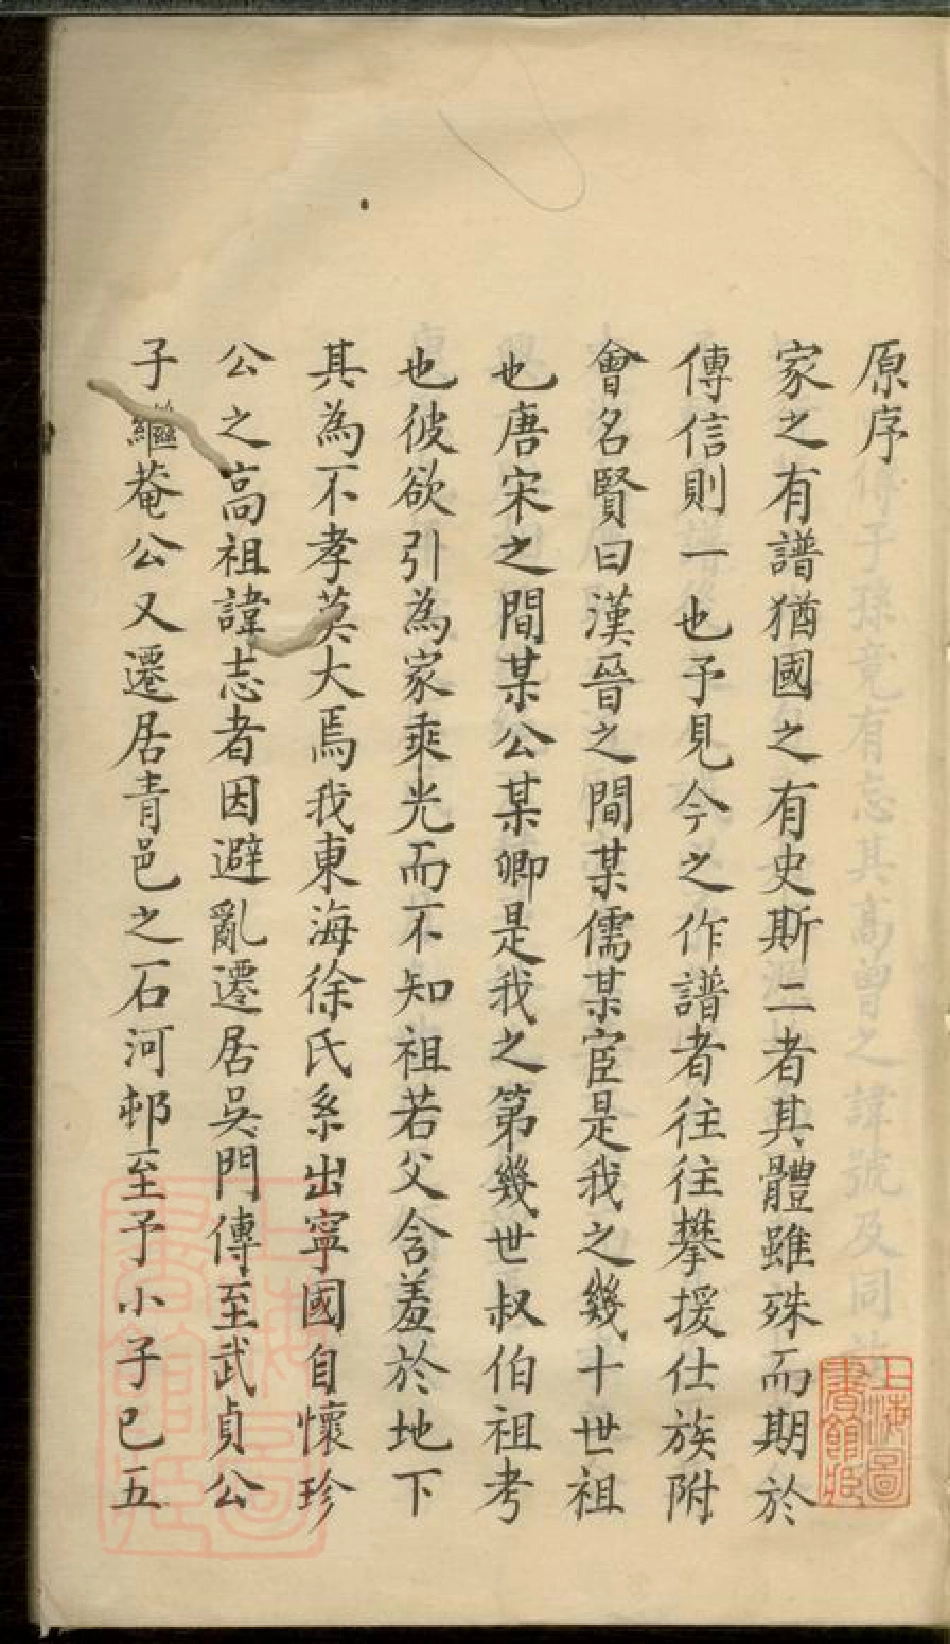 原序
家之有譜猶國之有史斯二者其體雖殊而期於
傳信則一也予見今之作譜者往往攀援仕族附
會名賢曰漢晉之間某儒某宦是我之幾十世祖
也唐宋之間某公某卿是我之第幾世叔伯祖考
也彼欲引為家乘光而不知祖若父含羞於地下
其為不孝莫大焉我東海徐氏系出寧國自懷珍
公之高祖諱志者因避亂遷居吳門傳至武貞公
子繼菴公又遷居青邑之石河邨至予小子已五
上海圖書館藏